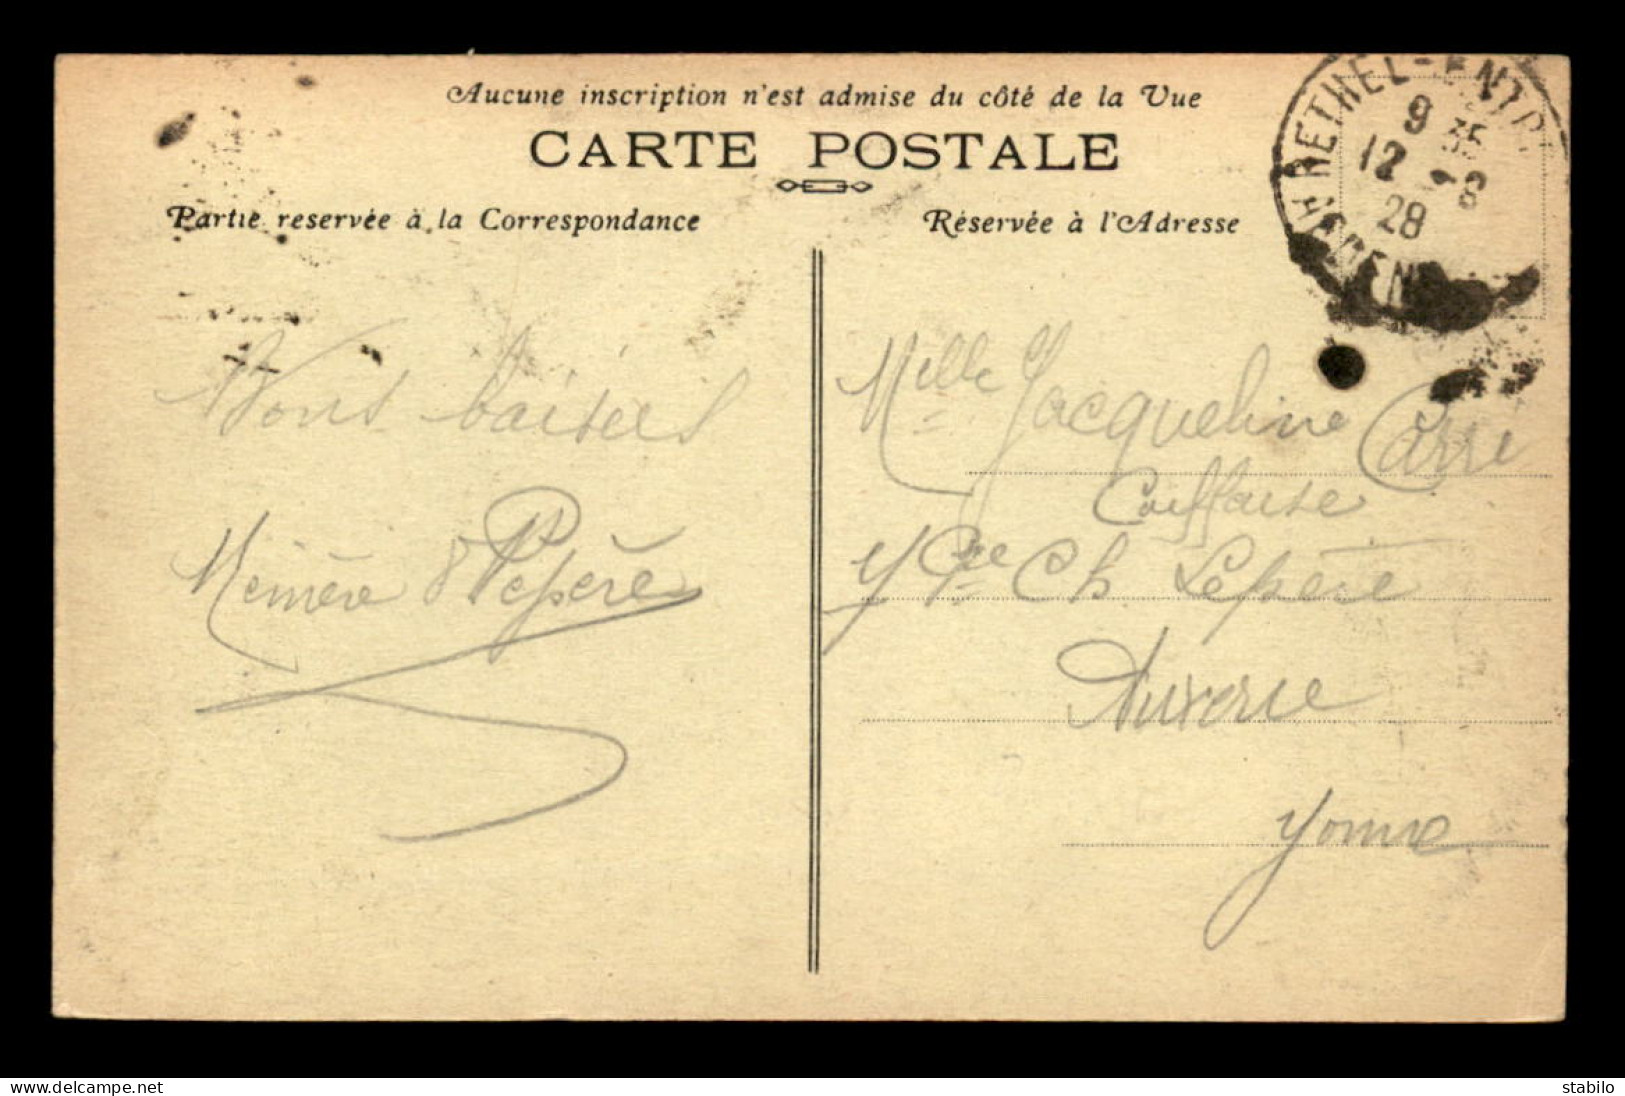 Aucune inscription n'est admise du côté de la Vue
CARTE POSTALE
Partie reservée à la Correspondance
Réservée à l'Adresse
RETHEL-ENTR
9 35
12 -8
28
ARDEN
Bons baisers
Mémère & Pepère
Melle Jacqueline Carré
Coiffeuse
Ch. Lepère
Auxerre
Yonne
delcampe.net
stabilo